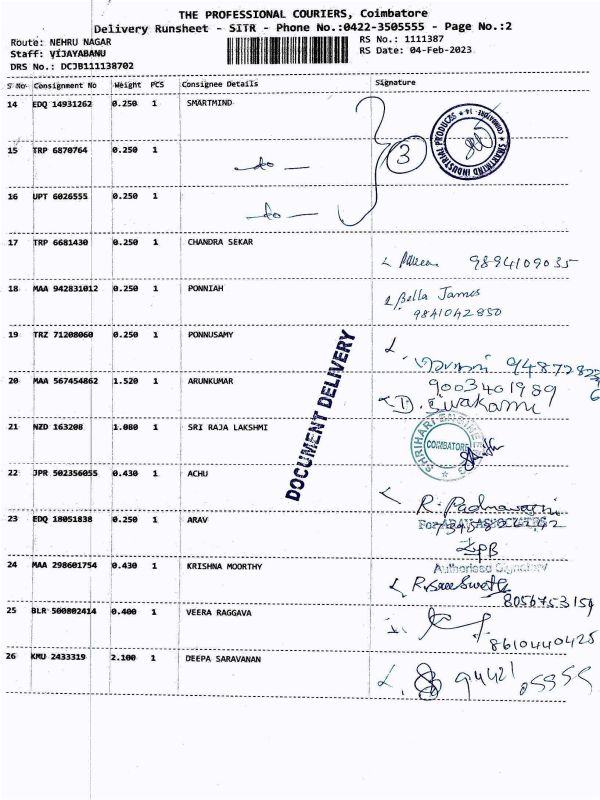 THE PROFESSIONAL COURIERS, Coimbatore
Delivery Runsheet - SITR - Phone No.:0422-3505555 - Page No.:2
Route: NEHRU NAGAR
RS No.: 1111387
Staff: VIJAYABANU
RS Date: 04-Feb-2023
DRS No.: DCJB111138702
S No Consignment No Weight PCS Consignee Details Signature
14 EDQ 14931262 0.250 1 SMARTMIND
15 TRP 6870764 0.250 1 — do —
3
SMARTMIND INDUSTRIAL PRODUCTS ★ COIMBATORE - 14 ★
16 UPT 6026555 0.250 1 — do —
17 TRP 6681430 0.250 1 CHANDRA SEKAR
9894109035
18 MAA 942831012 0.250 1 PONNIAH
Bella James
9841042850
19 TRZ 71208060 0.250 1 PONNUSAMY
20 MAA 567454862 1.520 1 ARUNKUMAR
9003401989
D. Sivakami
DOCUMENT DELIVERY
21 NZD 163208 1.080 1 SRI RAJA LAKSHMI
COIMBATORE
22 JPR 502356055 0.430 1 ACHU
23 EDQ 18051838 0.250 1 ARAV
24 MAA 298601754 0.430 1 KRISHNA MOORTHY
Authorised Signatory
8056753154
25 BLR 500802414 0.400 1 VEERA RAGGAVA
8610440425
26 KMU 2433319 2.100 1 DEEPA SARAVANAN
94421 05555